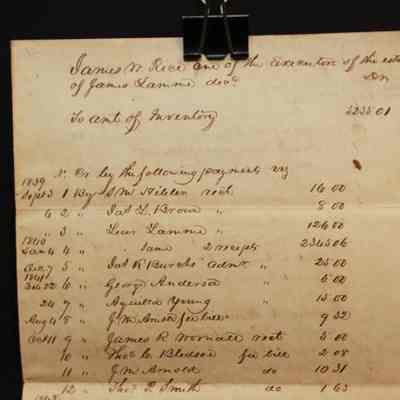 James W Rice one of the executors of the esta
of James Lamme decd Dr
To amt of Inventory 5235 01
N. Cr by the following payments viz
1839
Sept 3 1 By S. M. Hibler rect 16 00
6 2 " Jas L. Brown " 8 00
" 3 " Levi Lamme " 126 00
1840
Jan 4 4 " Same 2 receipts 2345 06
Oct 7 5 " Jas R Burch's admr " 25 00
1841
22 6 " George Anderson " 5 00
24 7 " Young " 15 00
Aug 4 8 " J. M. fee bill 9 32
Oct 11 9 " James R rect 5 00
10 " Thos C. Bledsoe fee bill 2 08
11 " J. M. Arnold do 10 31
12 " Thos P. Smith do 1 63